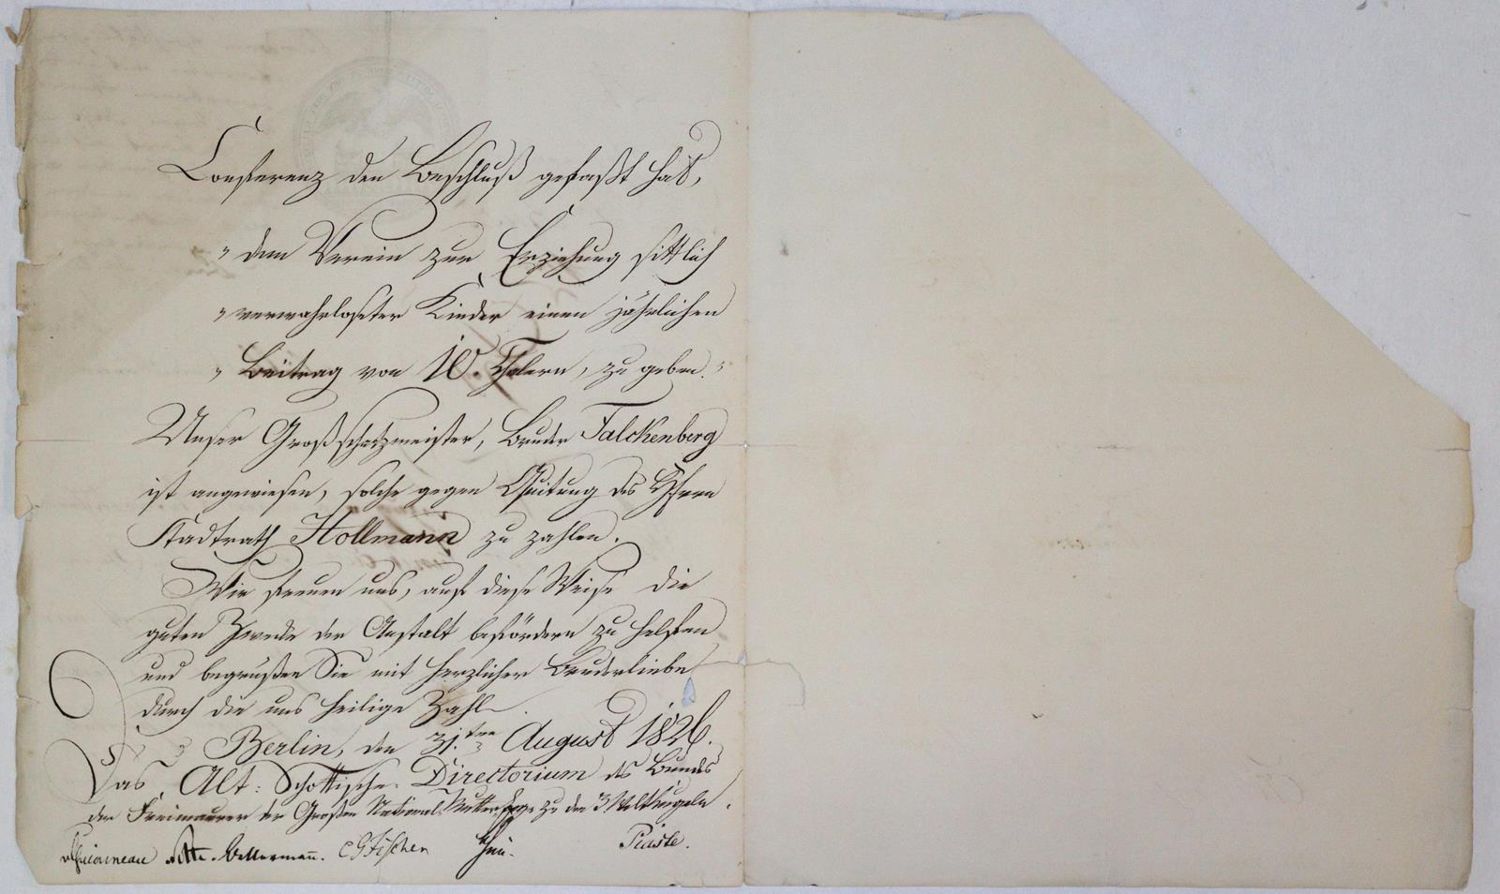 Conferenz den Beschluß gefaßt hat,
„dem Verein zur Erziehung sittlich
„verwahrloseter Kinder einen jährlichen
„Beitrag von 10. Thalern, zu geben.“
Unser Großschatzmeister, Bruder Falckenberg
ist angewiesen, solche gegen Quitung des Herrn
Stadtrath Hollmann zu zahlen.
Wir freuen uns, auf diese Weise die
guten Zwecke der Anstalt befördern zu helfen
und begrüßen Sie mit herzlicher Bruderliebe
durch die uns heilige Zahl.
Berlin, den 31.ten August 1826.
Das Alt: Schottische Directorium des Bundes
der Freimaurer der Großen National Mutterloge zu den 3 Weltkugeln.
Guionneau Bellermann. C G Fischer Piaste.